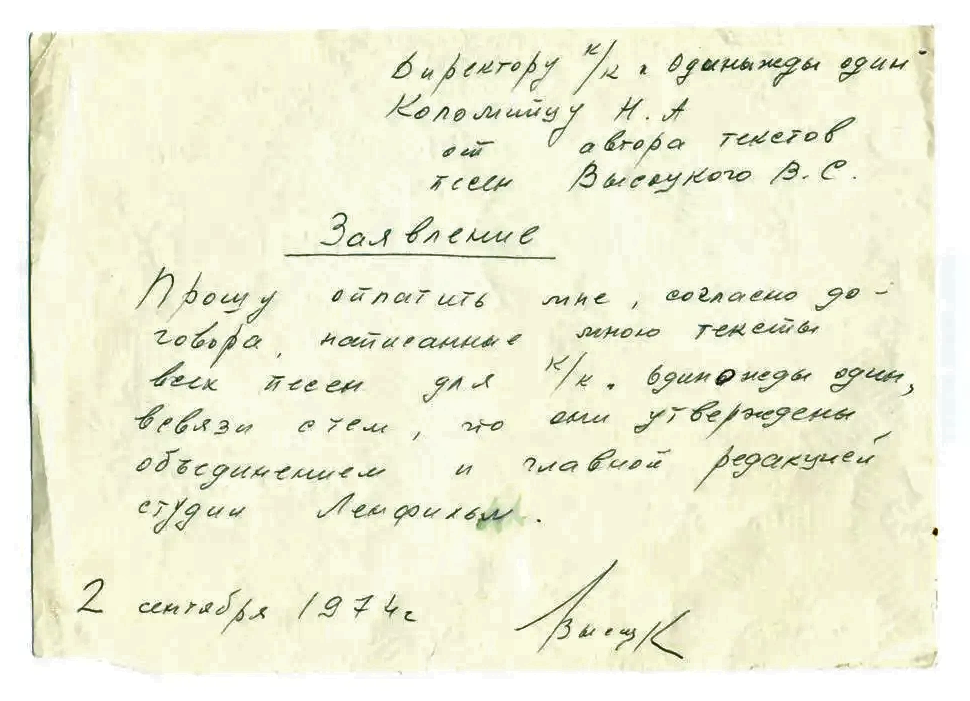 Директору к/к „ Одинажды один
Коломийцу Н. А
от автора текстов
песен Высоцкого В. С.
Заявление
Прошу оплатить мне, согласно до-
говора, написанные мною тексты
всех песен для к/к „ Одиножды один,
всвязи с тем, что они утверждены
объединением и главной редакцией
студии Ленфильм.
2 сентября 1974г